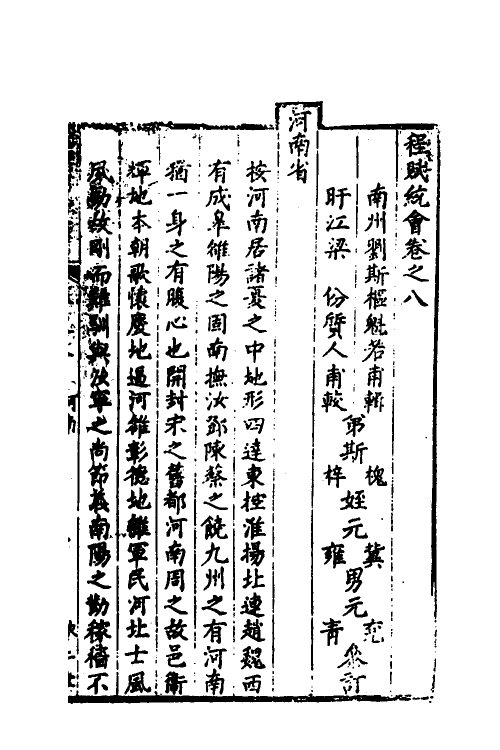 程賦統會卷之八
南州劉斯樞魁若甫輯 弟斯槐梓 姪元冀雍 男元兖青 叅訂
盱江梁 份質人甫較
河南省
按河南居諸夏之中地形四達東控淮揚北連趙魏西
有成臯雒陽之固南撫汝鄧陳蔡之饒九州之有河南
猶一身之有腹心也開封宋之舊都河南周之故邑衛
輝地本朝歌懷慶地過河雒彰德地雜軍民河北士風
風勁故剛而難馴與汝寧之尚節義南陽之勤稼穡不